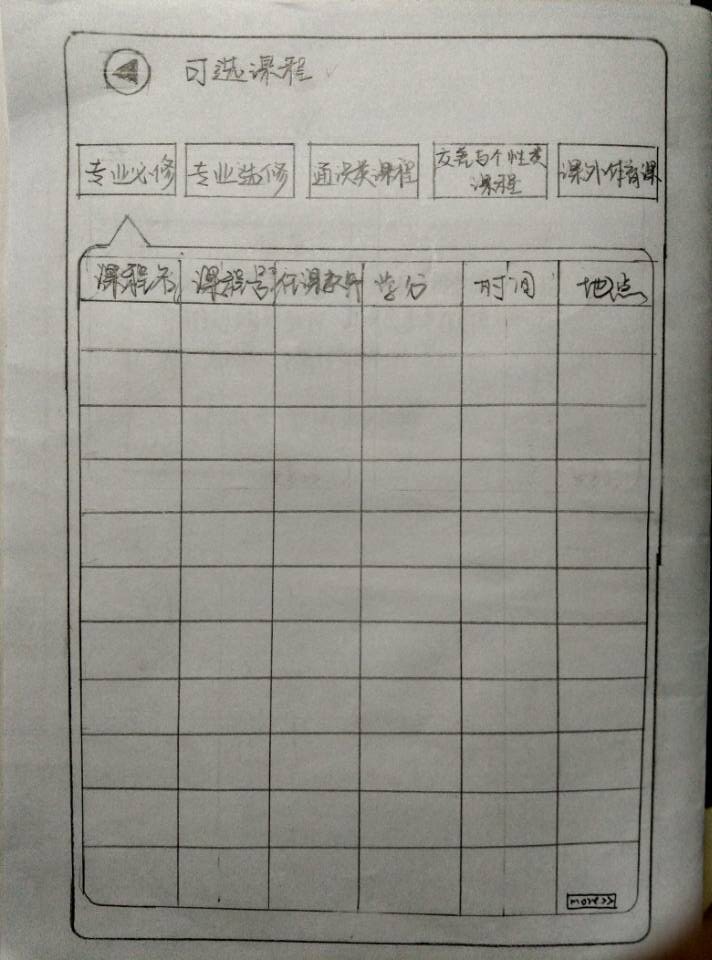 可选课程
专业必修
专业选修
通识类课程
交流与个性类
课程
课外体育课
课程名
课程号
任课教师
学分
时间
地点
more>>